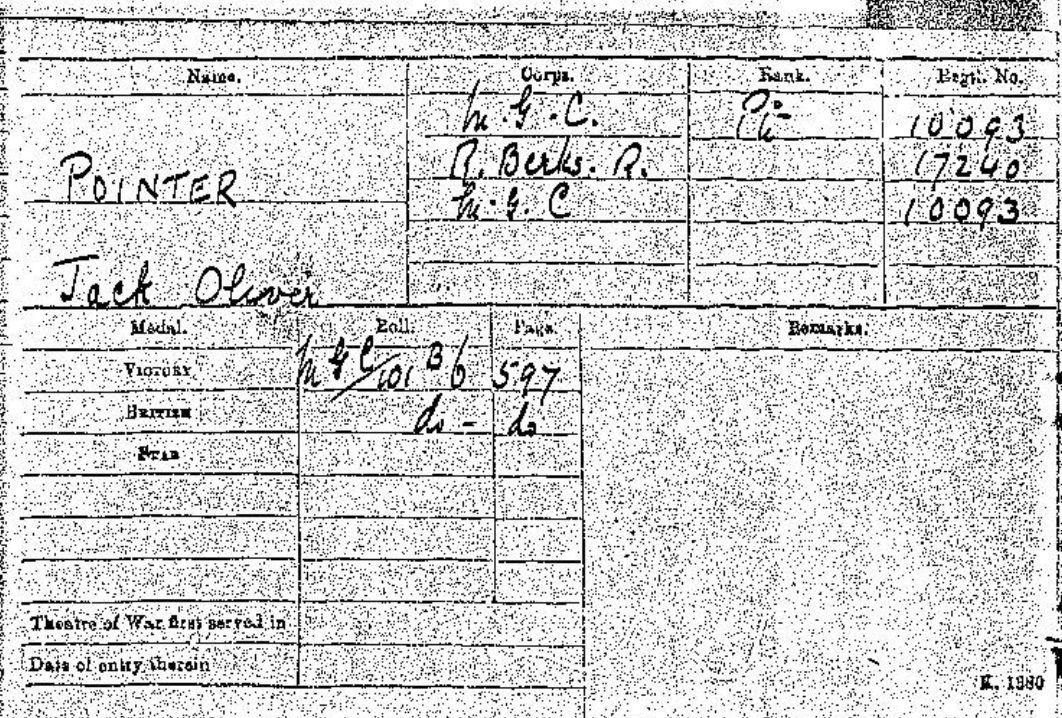 Name. Corps. Rank. Regtl. No.
M.G.C. Pte 10093
R. Berks. R. 17240
POINTER
M.G.C 10093
Jack Oliver
Medal. Roll. Page. Remarks.
VICTORY MGC/101 B6 597
BRITISH do - do
STAR
Theatre of War first served in
Date of entry therein
K. 1380